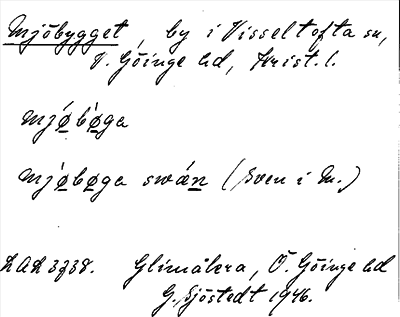 Mjöbygget, by i Visseltofta sn,
V. Göinge hd, Krist. l.
mjǿbø̀ga
mjǿbøga swǽn (Sven i M.)
LAL 3738. Glimåkra, Ö. Göinge hd
G. Sjöstedt 1946.